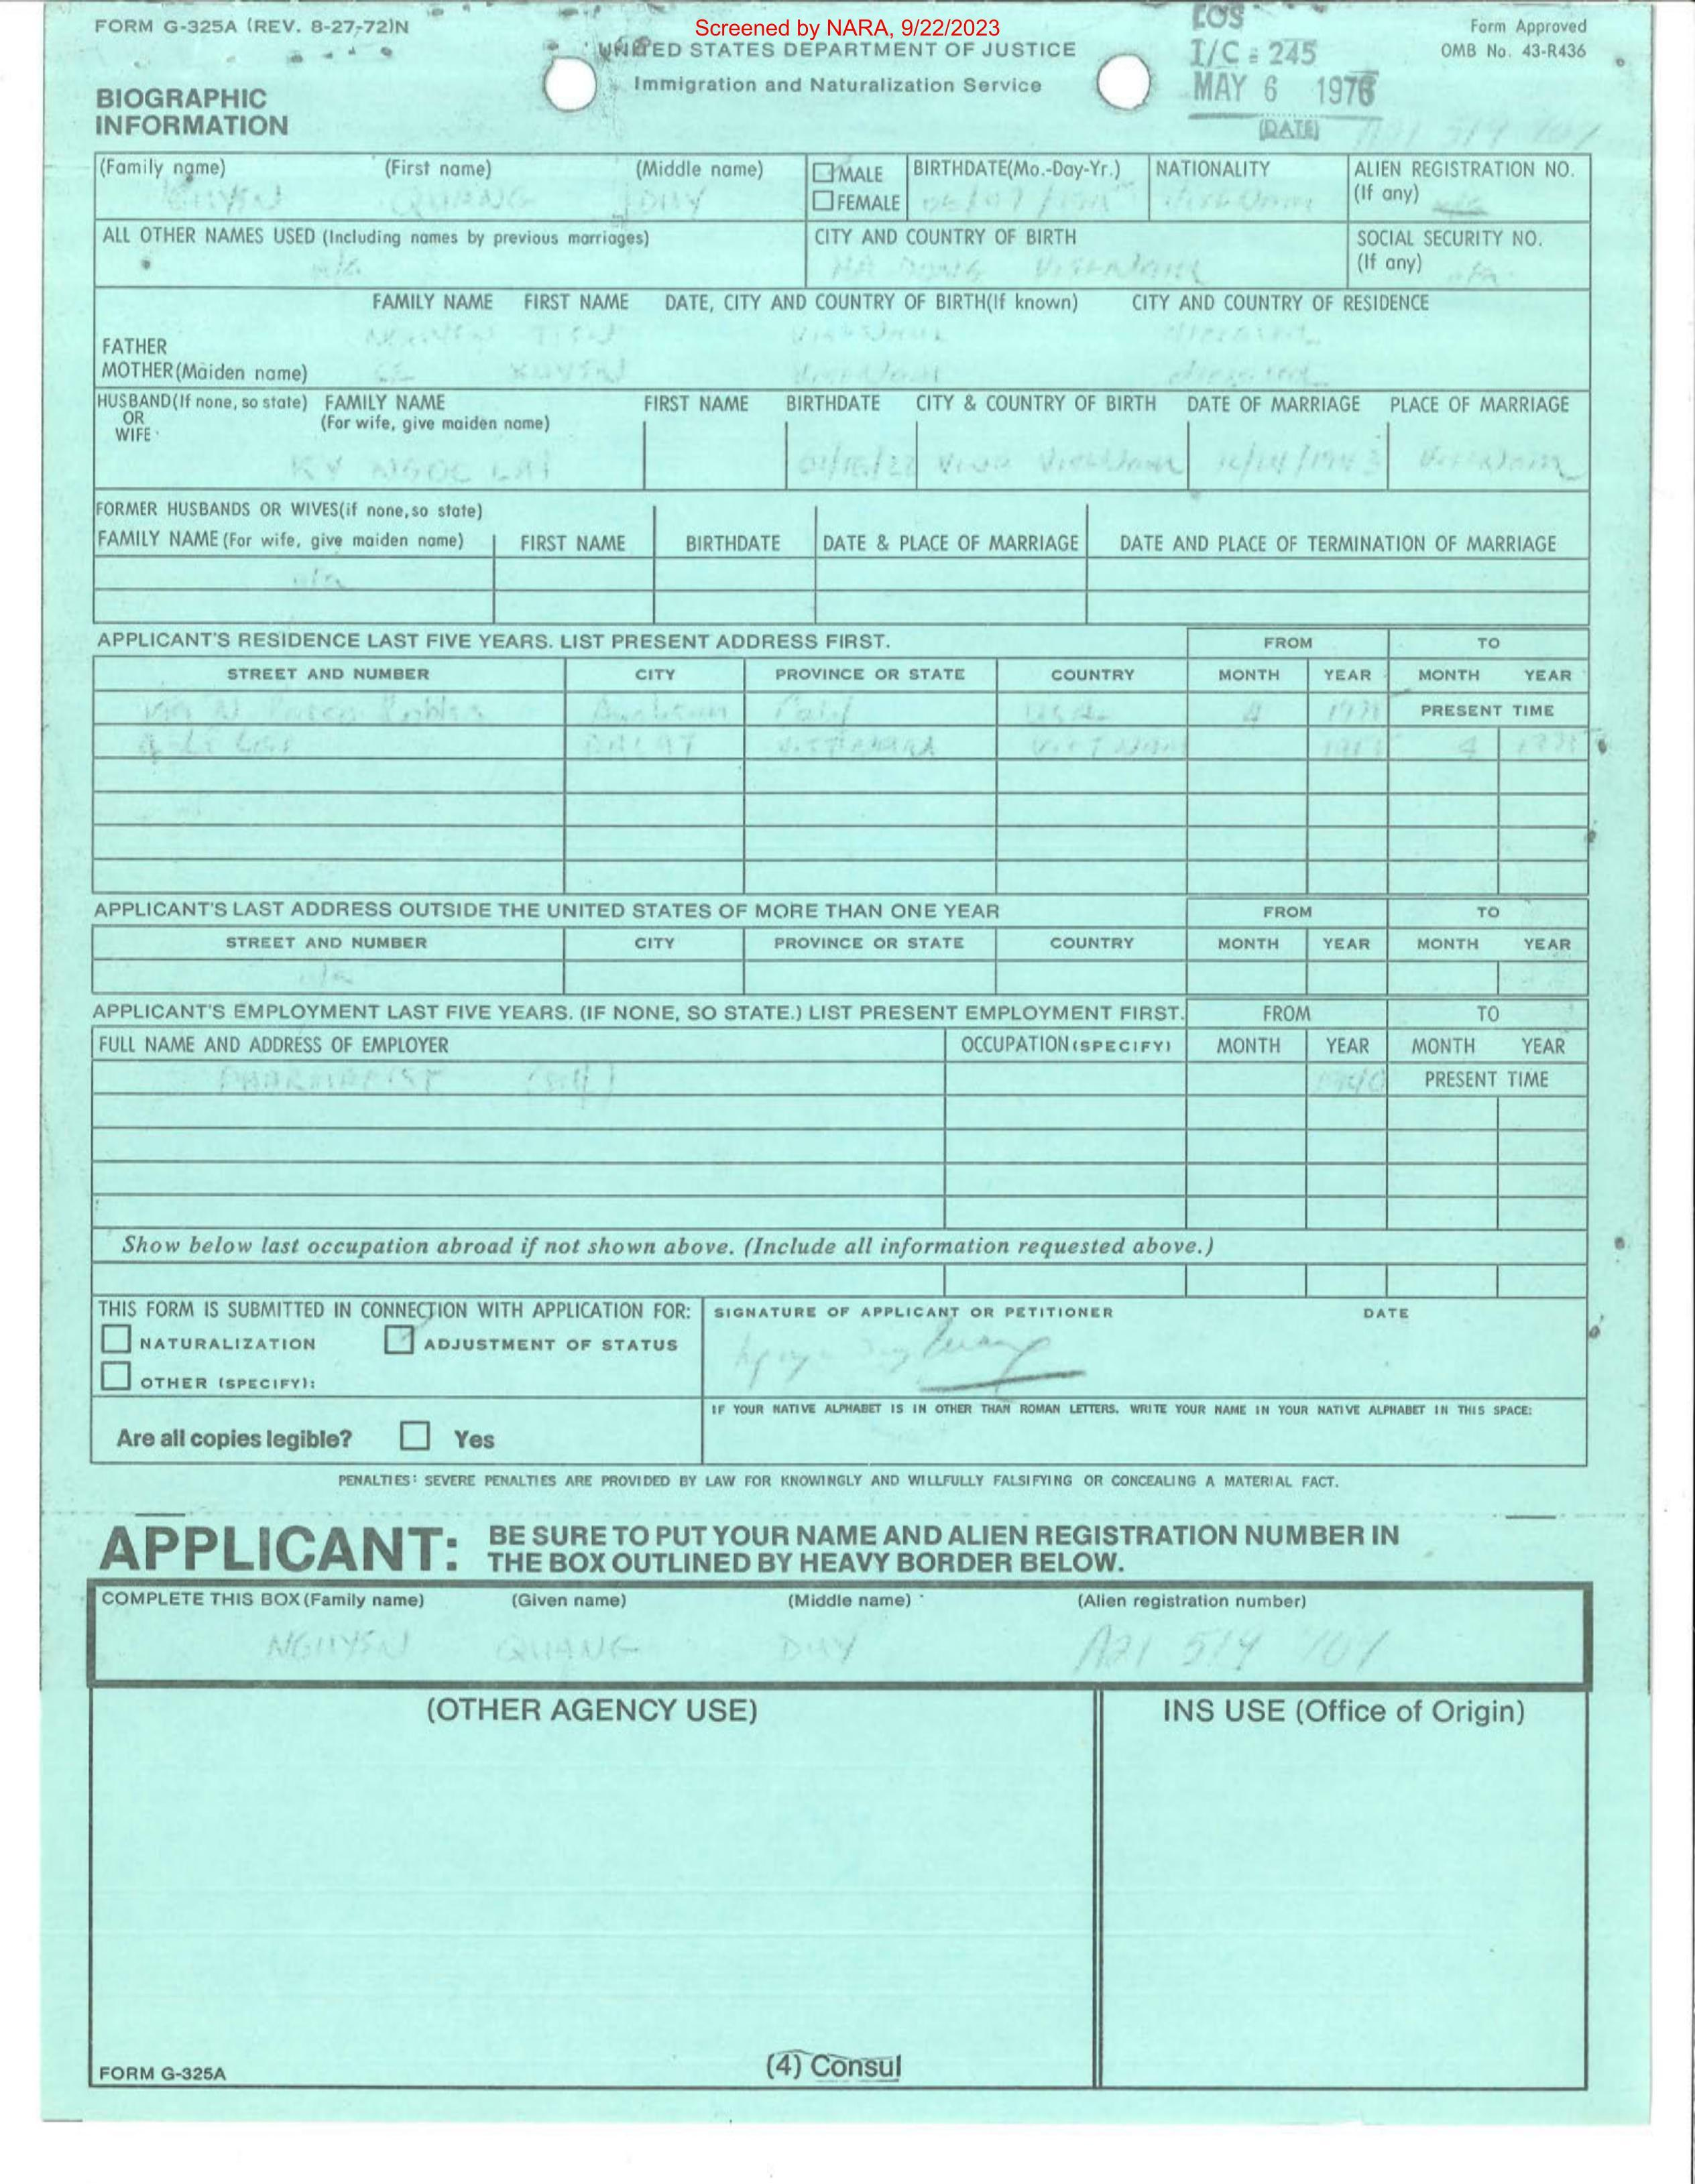 Screened by NARA, 9/22/2023
FORM G-325A (REV. 8-27-72)N
UNITED STATES DEPARTMENT OF JUSTICE
Immigration and Naturalization Service
LOS
I/C = 245
MAY 6 1976
(DATE)
Form Approved
OMB No. 43-R436
BIOGRAPHIC
INFORMATION
(Family name) (First name) (Middle name)
QUANG DUY
MALE
FEMALE
BIRTHDATE(Mo.-Day-Yr.)
NATIONALITY
ALIEN REGISTRATION NO.
(If any) n/a
ALL OTHER NAMES USED (Including names by previous marriages)
n/a
CITY AND COUNTRY OF BIRTH
HA DONG VIETNAM
SOCIAL SECURITY NO.
(If any) n/a
FAMILY NAME FIRST NAME DATE, CITY AND COUNTRY OF BIRTH(If known) CITY AND COUNTRY OF RESIDENCE
FATHER
MOTHER(Maiden name)
HUSBAND(If none, so state) FAMILY NAME FIRST NAME BIRTHDATE CITY & COUNTRY OF BIRTH DATE OF MARRIAGE PLACE OF MARRIAGE
OR (For wife, give maiden name)
WIFE
KY NGOC LAI VietNam VietNam
FORMER HUSBANDS OR WIVES(if none, so state)
FAMILY NAME (For wife, give maiden name) FIRST NAME BIRTHDATE DATE & PLACE OF MARRIAGE DATE AND PLACE OF TERMINATION OF MARRIAGE
n/a
APPLICANT'S RESIDENCE LAST FIVE YEARS. LIST PRESENT ADDRESS FIRST. FROM TO
STREET AND NUMBER CITY PROVINCE OR STATE COUNTRY MONTH YEAR MONTH YEAR
Calif USA PRESENT TIME
DALAT VIETNAM
APPLICANT'S LAST ADDRESS OUTSIDE THE UNITED STATES OF MORE THAN ONE YEAR FROM TO
STREET AND NUMBER CITY PROVINCE OR STATE COUNTRY MONTH YEAR MONTH YEAR
n/a
APPLICANT'S EMPLOYMENT LAST FIVE YEARS. (IF NONE, SO STATE.) LIST PRESENT EMPLOYMENT FIRST. FROM TO
FULL NAME AND ADDRESS OF EMPLOYER OCCUPATION (SPECIFY) MONTH YEAR MONTH YEAR
PHARMACIST 1940 PRESENT TIME
Show below last occupation abroad if not shown above. (Include all information requested above.)
THIS FORM IS SUBMITTED IN CONNECTION WITH APPLICATION FOR:
NATURALIZATION ADJUSTMENT OF STATUS
OTHER (SPECIFY):
SIGNATURE OF APPLICANT OR PETITIONER DATE
IF YOUR NATIVE ALPHABET IS IN OTHER THAN ROMAN LETTERS, WRITE YOUR NAME IN YOUR NATIVE ALPHABET IN THIS SPACE:
Are all copies legible? Yes
PENALTIES: SEVERE PENALTIES ARE PROVIDED BY LAW FOR KNOWINGLY AND WILLFULLY FALSIFYING OR CONCEALING A MATERIAL FACT.
APPLICANT: BE SURE TO PUT YOUR NAME AND ALIEN REGISTRATION NUMBER IN
THE BOX OUTLINED BY HEAVY BORDER BELOW.
COMPLETE THIS BOX (Family name) (Given name) (Middle name) (Alien registration number)
NGUYEN QUANG DUY A21 519 707
(OTHER AGENCY USE)
INS USE (Office of Origin)
FORM G-325A
(4) Consul